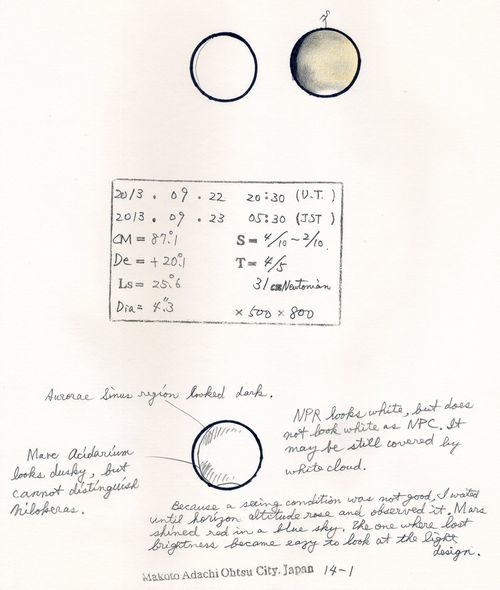 2013 . 09 . 22 20:30 (U.T.)
2013 . 09 . 23 05:30 (JST)
CM = 87°.1 S = 4/10 ~ 2/10.
De = + 20°.1 T = 4/5
Ls = 25°.6 31 cm Newtonian
Dia = 4".3 × 500 × 800
Aurorae Sinus region looked dark.
NPR looks white, but does
not look white as NPC. It
may be still covered by
white cloud.
Mare Acidarium
looks dusky, but
cannot distinguish
Nilokeras.
Because a seeing condition was not good, I waited
until horizon altitude rose and observed it. Mars
shined red in a blue sky. The one where lost
brightness became eazy to look at the light
design.
Makoto Adachi Ohtsu City. Japan 14-1